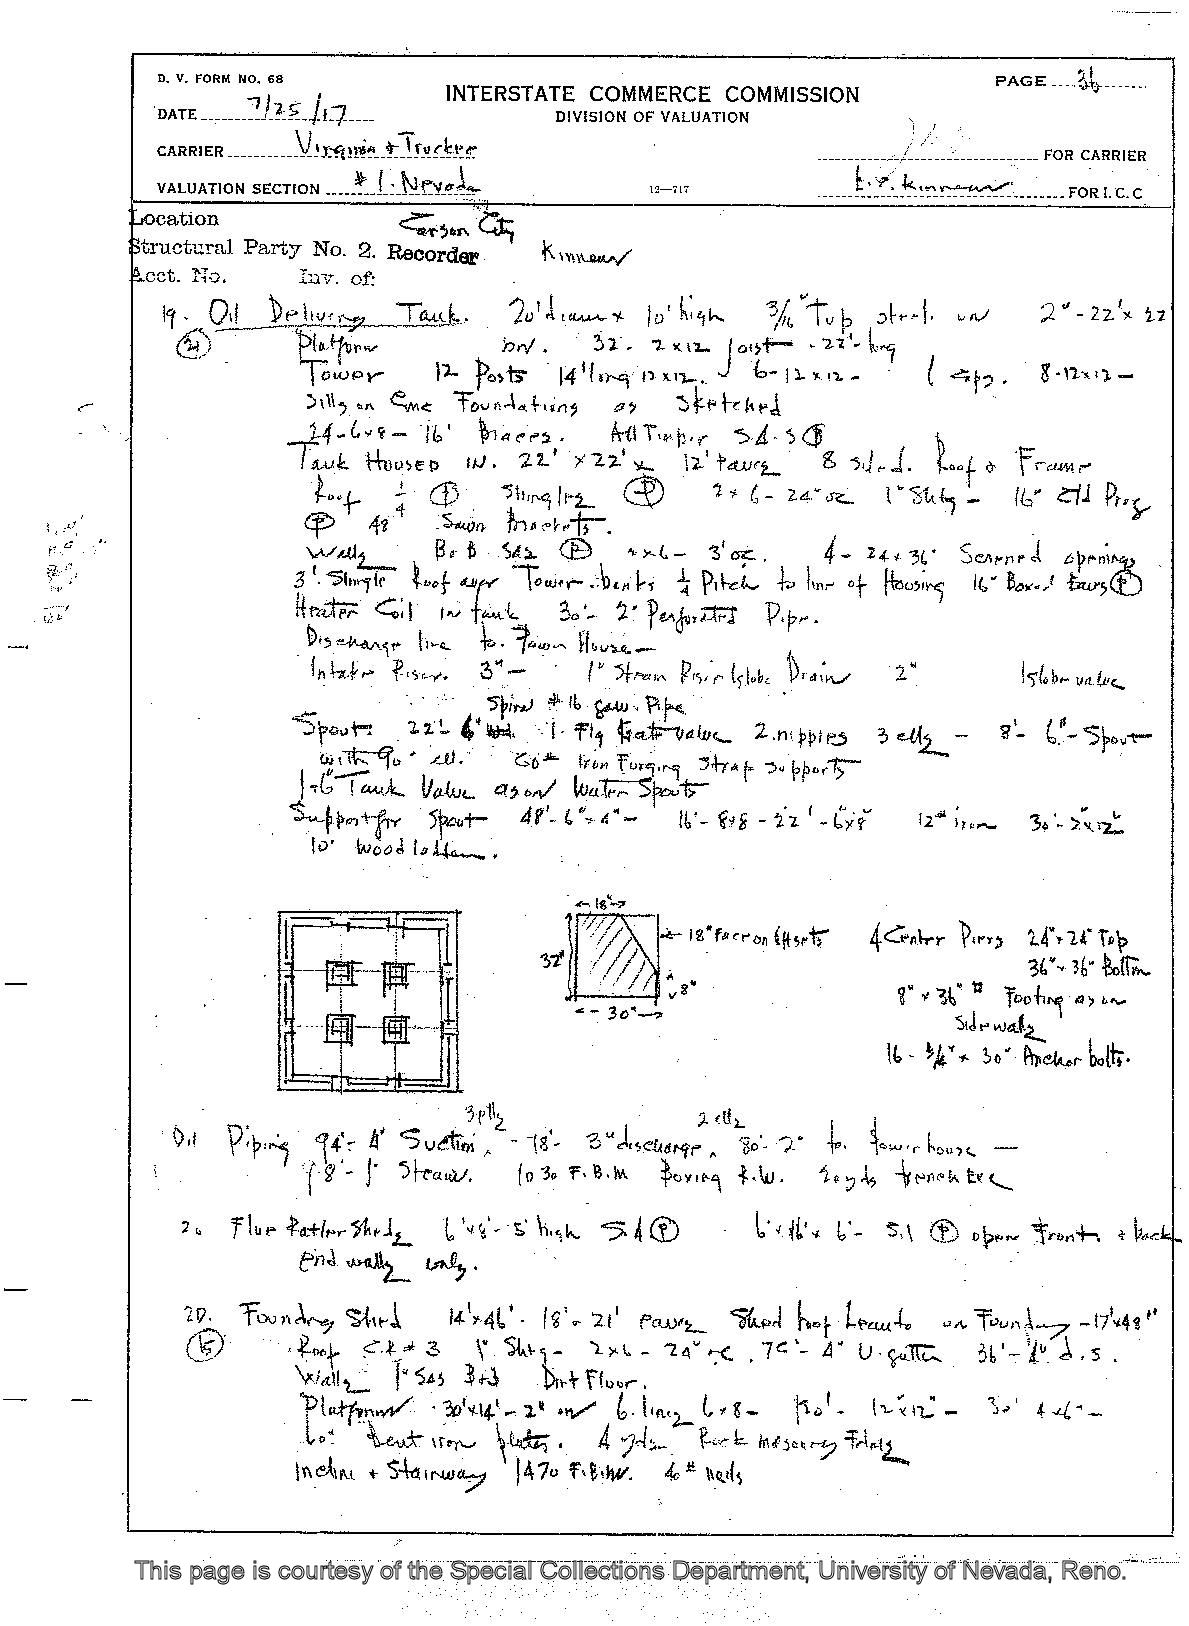 D. V. FORM NO. 68
PAGE 36
INTERSTATE COMMERCE COMMISSION
DATE 7/25/17
DIVISION OF VALUATION
CARRIER Virginia + Truckee
FOR CARRIER
VALUATION SECTION #1. Nevada
12—717
E.P. Kinnear FOR I. C. C
Location Carson City
Structural Party No. 2. Recorder Kinnear
Acct. No. Inv. of:
19. Oil Delivery Tank. 20' diam x 10' high 3/16" Tup steel. on 2" - 22' x 22
21 Platform on. 32 - 2x12 Joist - 22' - long
Tower 12 Posts 14' long 12x12. 6 - 12x12 - Caps. 8-12x12 -
Sills on Cmc Foundations as Sketched
24 - 6x8 - 16' Braces. All Timber S4S P
Tank Housed in. 22' x 22' x 12' Eaves 8 sided. Roof & Frame
Roof 1/4 P Shingles P 2x6 - 24" oc 1" Shtg - 16" Proj
P 48 Sawn Brackets.
Walls B&B S2S P 2x6 - 3' oc. 4 - 24 x 36" Screened openings
3' Shingle Roof over Tower bents 1/4 Pitch to line of Housing 16" Boxed Eaves P
Heater Coil in tank 30' - 2" Perforated Pipe.
Discharge line to Power House —
Intake Riser. 3" - 1" Steam Riser 1 globe Drain 2" 1 globe valve
Spiral #16 galv. Pipe
Spout 22' - 6" 1 Flg Gate valve 2 nipples 3 ells - 8' - 6" - Spout
with 90° ell. 60# Iron Forging Strap Supports
1-6" Tank Valve as on Water Spouts
Support for Spout 48' - 6" x 4" - 16' - 8x8 - 22' - 6"x8" 12# iron 30' - 2"x12"
10' Wood ladder.
18"
32"
18" Face on Offsets
8"
30"
4 Center Piers 24" x 24" Top
36" x 36" Bottom
8" x 36" Footing as on
Side walls
16 - 3/4" x 30" Anchor bolts.
3 ells 2 ells
Oil Piping 94' - 4" Suction, - 78' - 3" discharge, 80' - 2" to Power house —
98' - 1" Steam. 1030 F.B.M Boxing R.W. 20 yds trench Exc
20 Flue Rattler Sheds 6'x8' - 5' high S.1 P 6'x16' x 6' - S.1 P open Front & back
end walls only.
20. Foundry Shed 14'x46' - 18' - 21' eaves Shed Roof Leanto on Foundry - 17'x48'
15 Roof C.R #3 1" Shtg - 2x6 - 24" oc. 76' - 4" U. gutter 36' - 4" d.s.
Walls 1" S2S B+B Dirt Floor.
Platform 30'x14' - 2" on 6 lines 6x8 - 120' - 12"x12" - 30' 4x6" -
60# Bent iron plates. 4 yds Rock masonry Fdns
Incline & Stairway 1470 F.B.M. 40# nails
This page is courtesy of the Special Collections Department, University of Nevada, Reno.